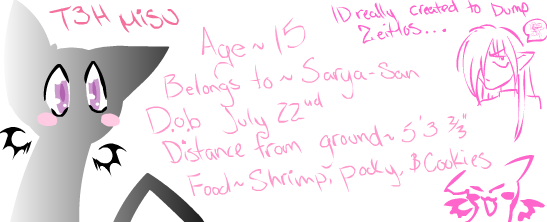 T3H MISU
IDreally created to Dump
Zeitlos...
Age~15
Belongs to ~ Sarya-San
D.o.b July 22nd
Distance from ground~ 5'3 2/3"
Food~Shrimp, pocky, & Cookies